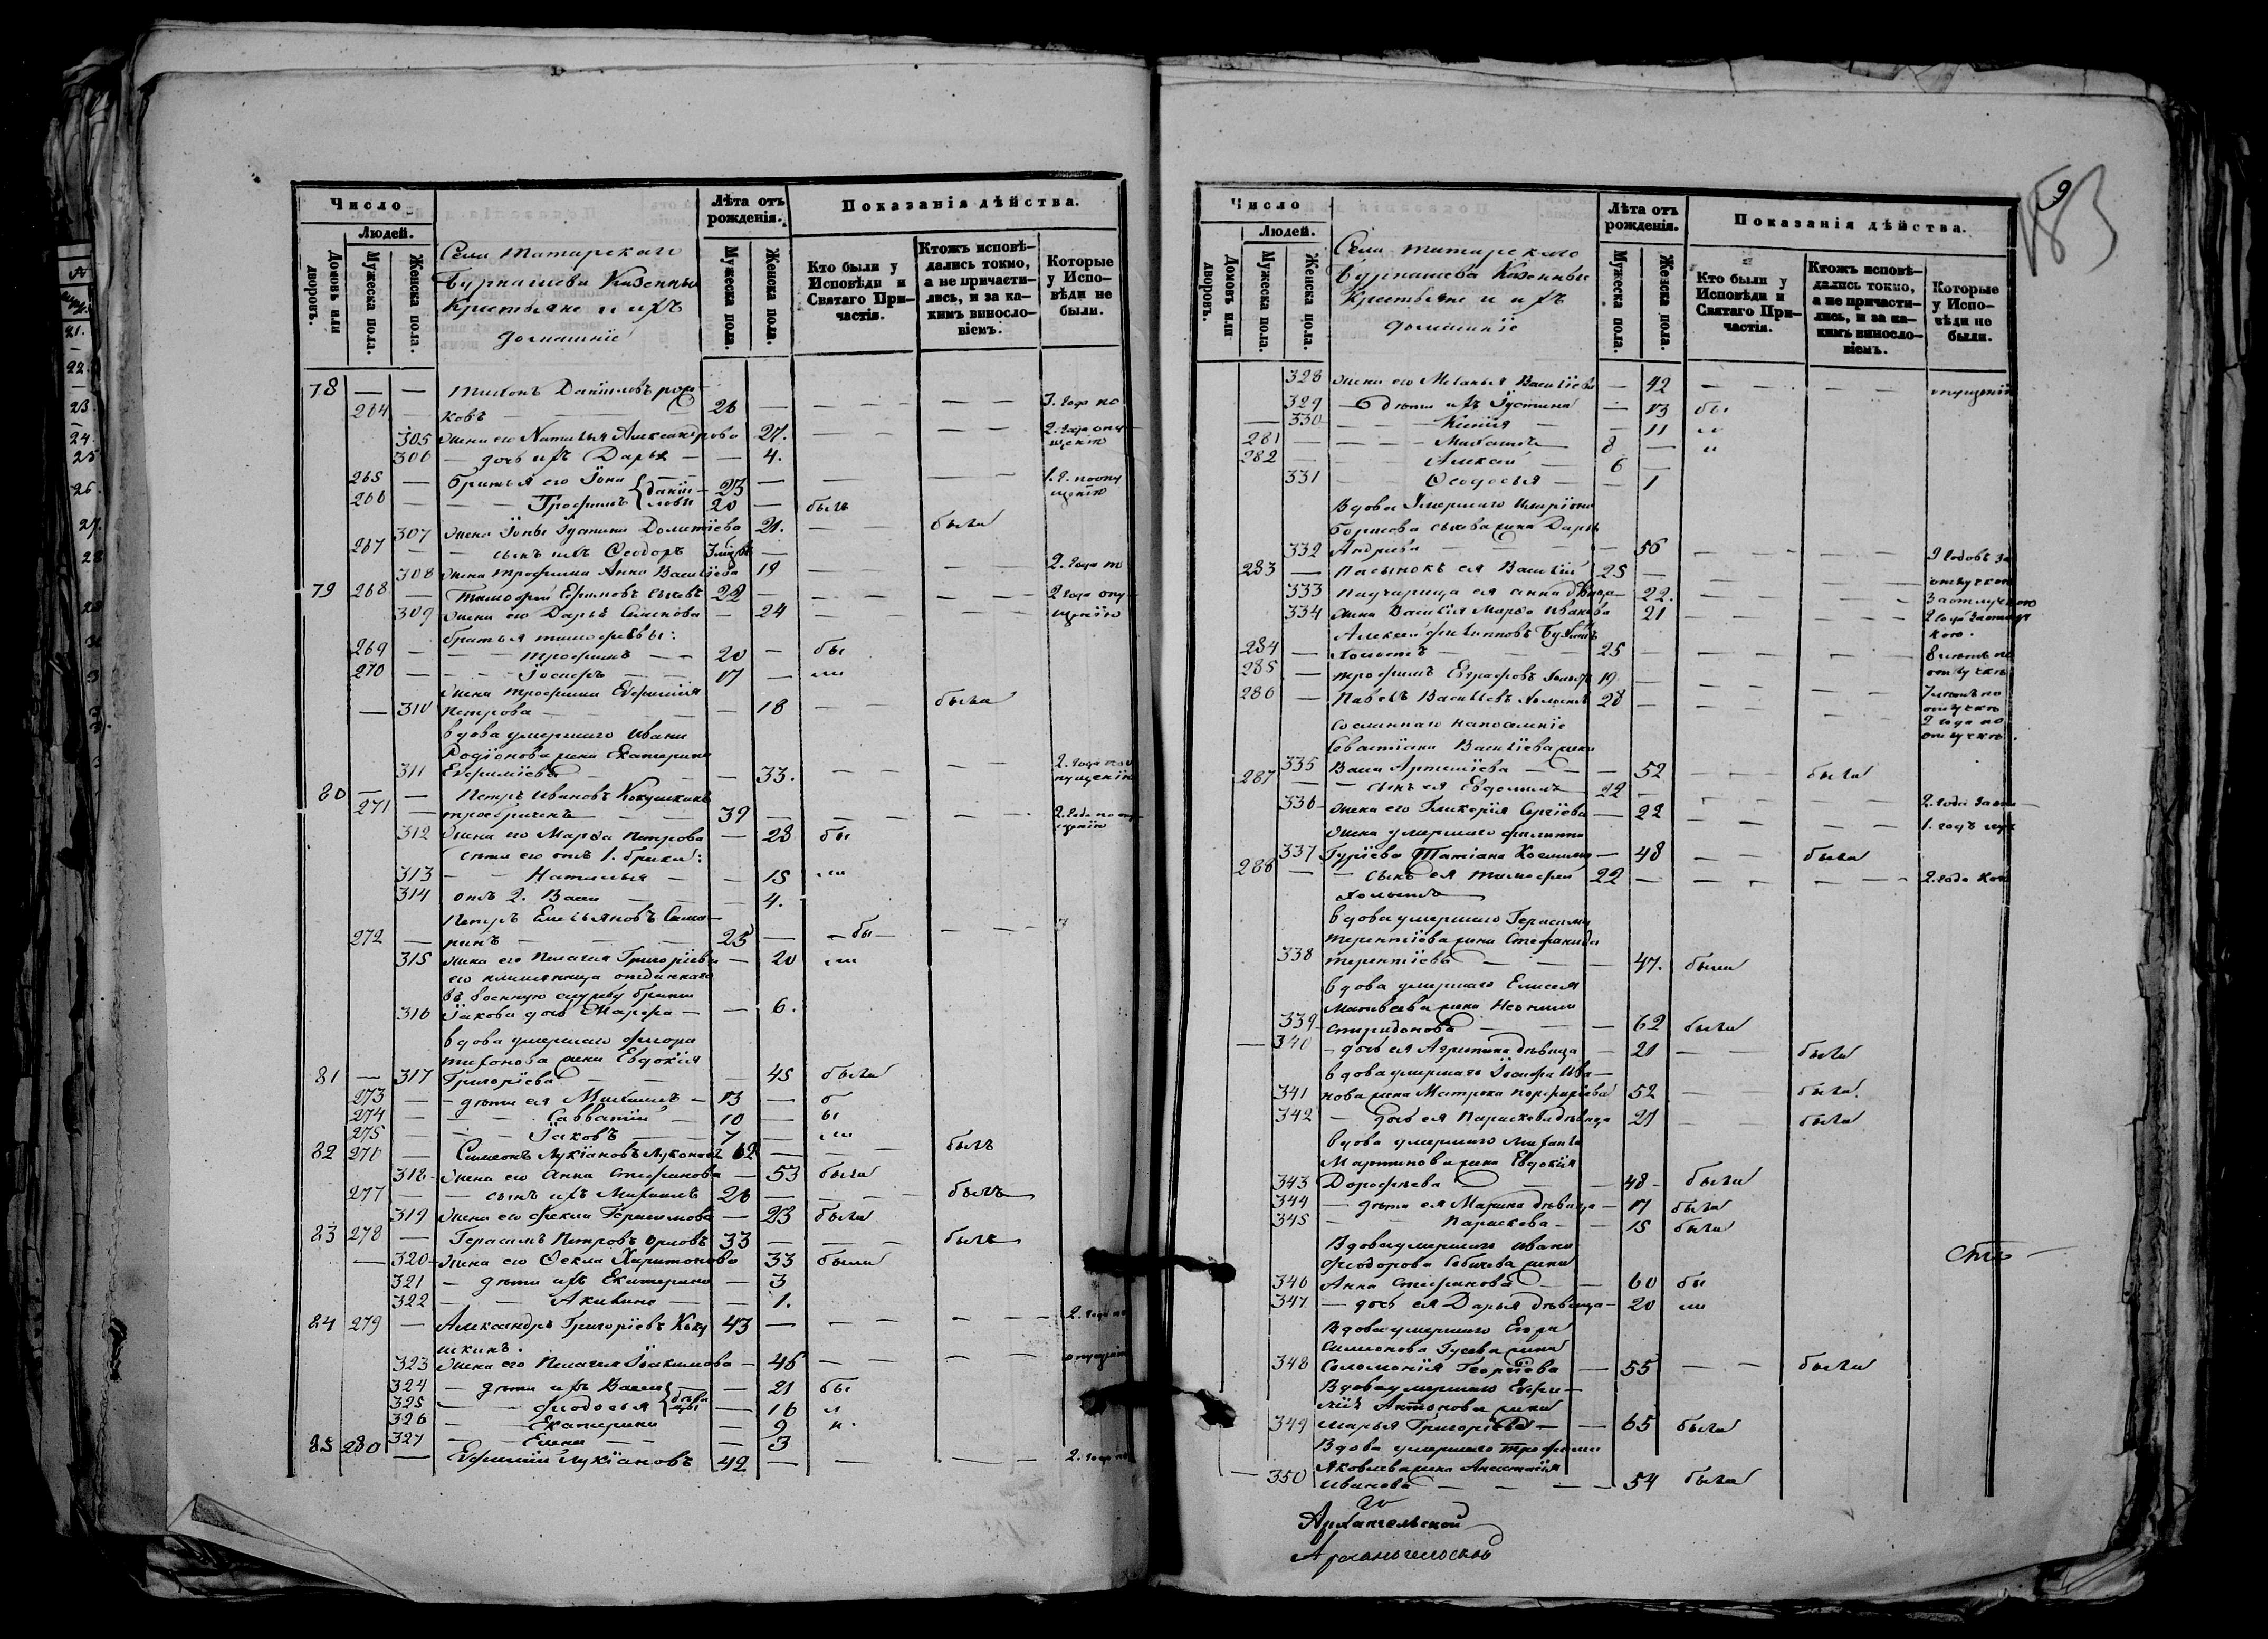 Число
Людей.
Домовъ или дворовъ.
Мужеска пола.
Женска пола.
Села Татарскаго
Бурнашева Казенные
Крестьяне и ихъ
домашніе
Лѣта отъ рожденія.
Мужеска пола.
Женска пола.
Показанія дѣйства.
Кто были у Исповѣди и Святаго Причастія.
Ктожъ исповѣдались токмо, а не причастились, и за какимъ винословіемъ.
Которые у Исповѣди не были.
78 — — Тихонъ Даниловъ
264 — ковъ — 26 —
305 жена его Наталья Александрова 27.
306 — дочь ихъ Дарья — — 4.
265 — братья его Іона — 23 —
266 — Трофимъ 20 — былъ
307 жена Іоны Іустина Дометіева 21. — была
267 — — сынъ ихъ Ѳеодоръ
308 жена Трофима Анна Василіева 19
79 268 — Тимофей Ефимовъ 22 — 2 года опу
309 жена его Дарья — 24 — щенію
братья Тимофеевы:
269 — — Трофимъ — — 20 — бы
270 — — Іосифъ — — 17 — ли
жена Трофима Евфимія
310 Петрова — 18 — — была
вдова умершаго Ивана
Родіонова жена Екатерина
311 Евфиміева — 33.
80 — — Петръ Ивановъ Кокушкинъ
271 — троебрачекъ — 39
312 жена его Марѳа Петрова — 28 бы
дѣти его отъ 1. брака:
313 — — Наталья — — 15 ли
314 отъ 2. Васса — — 4.
Петръ Емельяновъ
272 — — 25 — бы —
315 жена его Пелагія Григоріева — 20 ли
его племянница отданнаго
въ военную службу брата
316 Іакова дочь Марѳа — — 6.
вдова умершаго Флора
Тихонова жена Евдокія
81 — 317 Григоріева — — 45 была
273 — — дѣти ея Михаилъ — 13 — б
274 — — — Савватій — 10 — ы
275 — — — Іаковъ — 7 — ли
82 276 — Симеонъ Лукіановъ 62 — — былъ
318 жена его Анна Стефанова — 53 была
277 — — сынъ ихъ Михаилъ 26 — — — былъ
319 жена его Фекла Герасимова — 23 была
83 278 — Герасимъ Петровъ Орловъ 33 — — былъ
— 320 жена его Ѳекла Харитонова 33 была
321 — дѣти ихъ Екатерина — 3
322 — — Акилина — — 1.
84 279 — Александръ Григоріевъ Коку 43 — 2. года по
шкинъ.
323 жена его Пелагія Іоакимова — 46
324 — дѣти ихъ Васса — 21 бы
325 — — Феодосья — 16 л
326 — — Екатерина — 9 и.
327 — — Елена — — 3
85 280 — Евфимій Лукіановъ 42 — 2. года по
Число
Людей.
Домовъ или дворовъ.
Мужеска пола.
Женска пола.
Села Татарскаго
Бурнашева Казенные
Крестьяне и ихъ
домашніе
Лѣта отъ рожденія.
Мужеска пола.
Женска пола.
Показанія дѣйства.
Кто были у Исповѣди и Святаго Причастія.
Ктожъ исповѣдались токмо, а не причастились, и за какимъ винословіемъ.
Которые у Исповѣди не были.
9
183
328 жена его Меланья Василіева — 42 — опущенію
329 — дѣти ихъ Іустина — 13 бы
330 — — Ксенія — 11 ли
281 — — Михаилъ — 8 — и
282 — — Алексѣй — 6 —
331 — — Ѳеодосья — — 1
Вдова умершаго Иларіона
Борисова жена Дарья
332 Андреева — — 56 — 2 годовъ за
283 — Пасынокъ ея Василій 25 — отлучкою
333 Падчерица ея Анна дѣвица — 22. — За отлучкою
334 жена Василія Марѳа Иванова 21 — 2 года за отлуч
Алексѣй Филипповъ кою.
284 — Холостъ — 25
285 — Трофимъ Евграфовъ холостъ 19
286 — Павелъ Василіевъ холостъ 20
Сосланнаго на поселеніе
Севастіана Василіева жена
335 Васса Артеміева — — 52 — была
287 — — сынъ ея Евдокимъ 22 —
336 жена его Гликерія Сергіева — 22 — 1. годъ
жена умершаго Филиппа
337 Гуріева Татіана Космина — 48 — — была
288 — — сынъ ея Тимофей 22 — 2. года
холостъ
Вдова умершаго Герасима
Терентіева жена Стефанида
338 Терентіева — — 47. была
вдова умершаго Елисея
Матвеева жена Неонила
339 Спиридонова — — 62 была
— 340 — дочь ея Агрипина дѣвица — 21 — — была
вдова умершаго Іосифа Ива—
341 нова жена Матрона Порфиріева 52 — — была.
342 — дочь ея Параскева дѣвица 21 — — была
вдова умершаго Михаила
Мартинова жена Евдокія
343 Дорофеева — — 48 — была
344 — дѣти ея Марина дѣвица — 17 была
345 — — Параскева — — 15 была
Вдова умершаго Ивана
Феодорова жена
346 Анна Стефанова — — 60 бы
347 — дочь ея Дарья дѣвица — 20 ли
Вдова умершаго Егора
Симионова Гусева жена
348 Соломонія Георгіева — 55 — — была
Вдова умершаго Евфи—
мія Антонова жена
349 Марья Григоріева — — 65 была
Вдова умершаго Трофима
Яковлева жена Анастасія
— 350 Иванова — — — 54 была
Архангельской
Архангельской